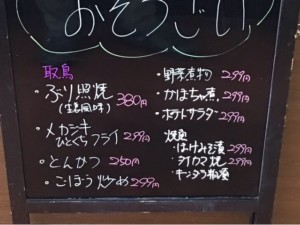 おそうざい
取鳥
・ぶり照焼
(生姜風味) 380円
・メカジキ
ひとくちフライ 299円
・とんかつ 250円
・ごぼう炒め 299円
・野菜煮物 299円
・かぼちゃ煮 299円
・ポテトサラダ 299円
焼魚
・ほっけみそ漬 299円
・タイカマ焼 299円
・キンダラ粕漬